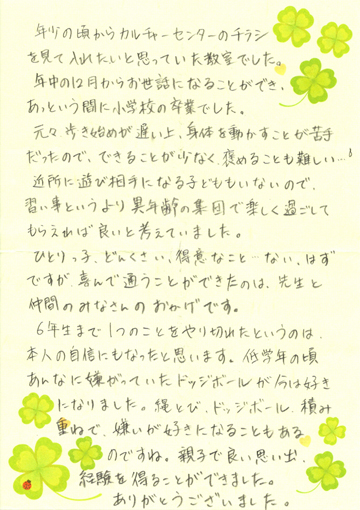 年少の頃からカルチャーセンターのチラシ
を見て入れたいと思っていた教室でした。
年中の12月からお世話になることができ、
あっという間に小学校の卒業でした。
元々歩き始めが遅い上、身体を動かすことが苦手
だったので、できることが少なく、褒めることも難しい…。
近所に遊び相手になる子どももいないので、
習い事というより異年齢の集団で楽しく過ごして
もらえれば良いと考えていました。
ひとりっ子、どんくさい、得意なこと…ない、はず
ですが、喜んで通うことができたのは、先生と
仲間のみなさんのおかげです。
6年生まで1つのことをやり切れたというのは、
本人の自信にもなったと思います。低学年の頃
あんなに嫌がっていたドッジボールが今は好き
になりました。縄とび、ドッジボール、積み
重ねで、嫌いが好きになることもある
のですね。親子で良い思い出、
経験を得ることができました。
ありがとうございました。